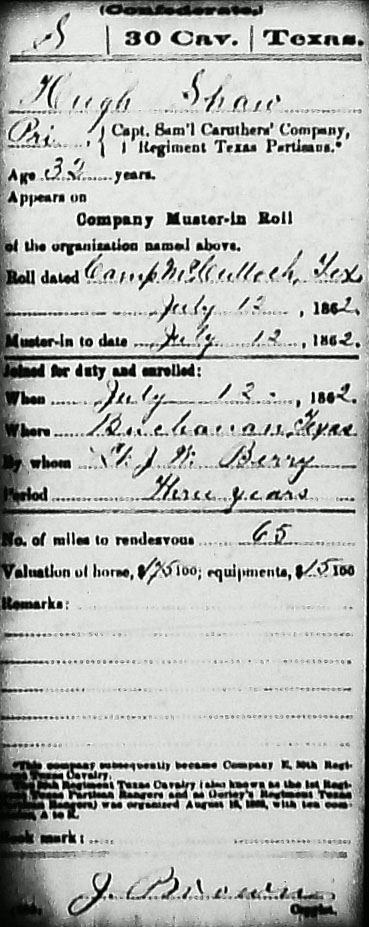 (Confederate.)
S | 30 Cav. | Texas.
Hugh Shaw
Pri , Capt. Sam'l Caruthers' Company,
1 Regiment Texas Partisans.*
Age 32 years.
Appears on
Company Muster-in Roll
of the organization named above.
Roll dated Camp McCulloch, Tex
July 12, 1862.
Muster-in to date July 12, 1862.
Joined for duty and enrolled:
When July 12, 1862.
Where Buchanan, Texas
By whom J. W. Berry
Period Three years
No. of miles to rendezvous 65
Valuation of horse, $175 100; equipments, $15 100
Remarks:
*This company subsequently became Company K, 30th Regi-
ment Texas Cavalry.
The 30th Regiment Texas Cavalry (also known as the 1st Regi-
ment Texas Partisan Rangers and as Gurley's Regiment Texas
Partisan Rangers) was organized August 18, 1862, with ten com-
panies, A to K.
Book mark:
J. Brown
Copyist.